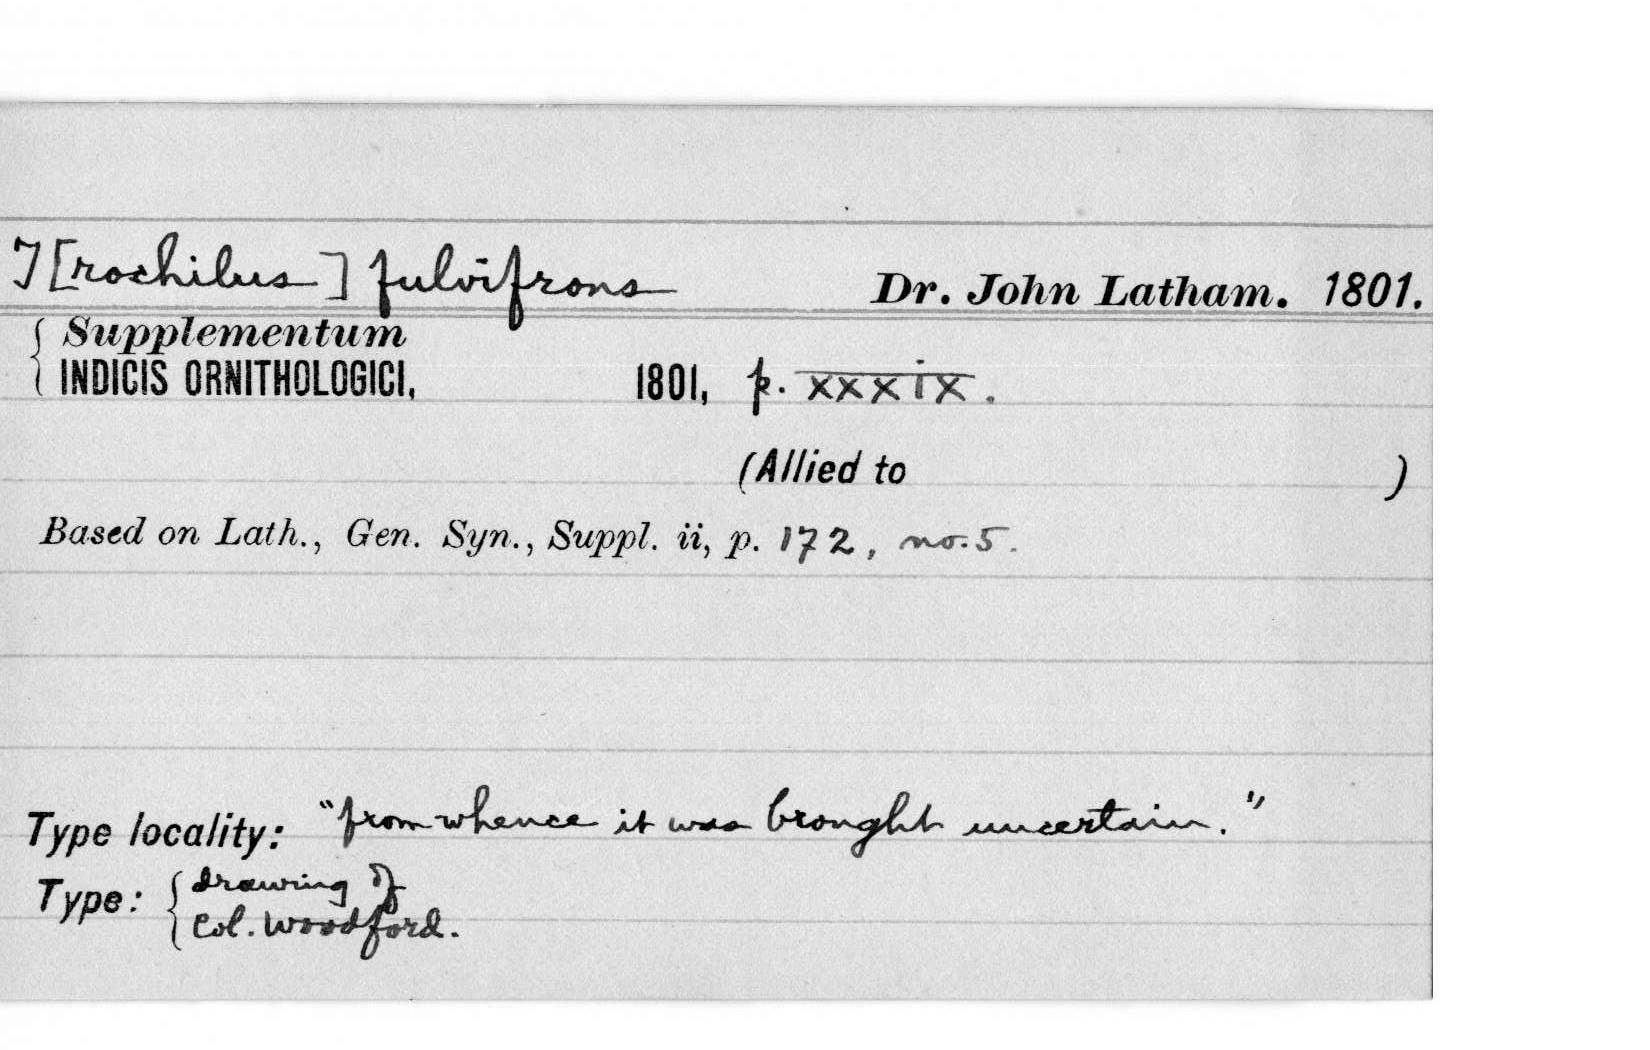 T[rochilus] fulvifrons Dr. John Latham. 1801.
Supplementum
INDICIS ORNITHOLOGICI, 1801, p. xxxix.
(Allied to )
Based on Lath., Gen. Syn., Suppl. ii, p. 172, no. 5.
Type locality: "from whence it was brought uncertain."
Type: drawing of
Col. Woodford.